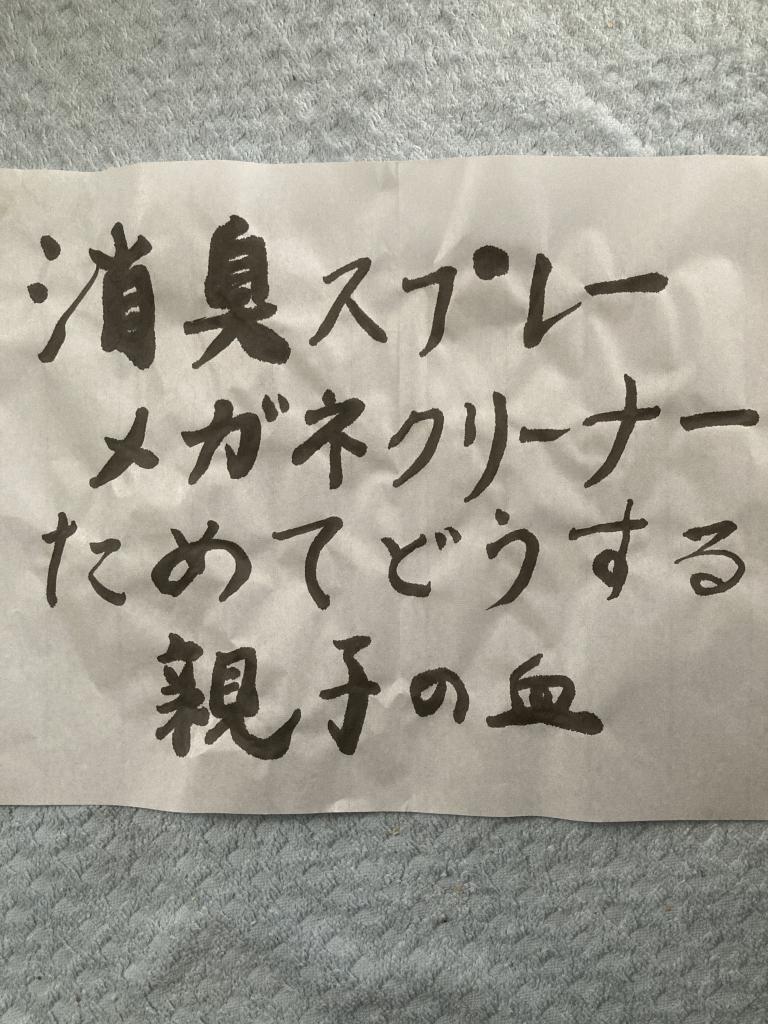 消臭スプレー
メガネクリーナー
ためてどうする
親子の血